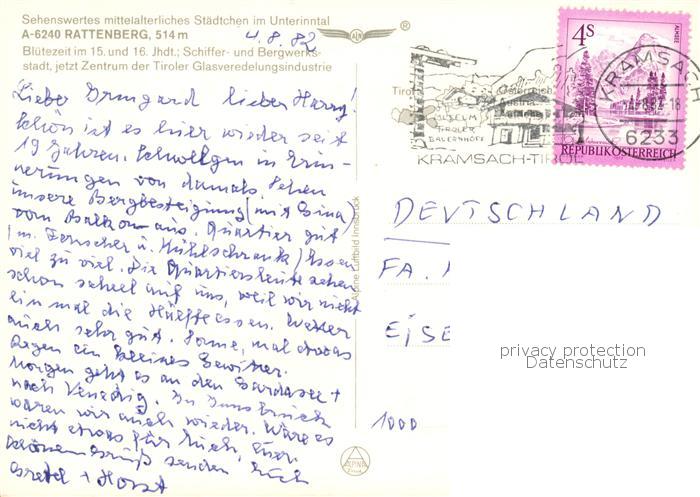 Sehenswertes mittelalterliches Städtchen im Unterinntal
A-6240 RATTENBERG, 514 m
4.8.82
Blütezeit im 15. und 16. Jhdt.; Schiffer- und Bergwerks-
stadt, jetzt Zentrum der Tiroler Glasveredelungsindustrie
Lieber Irmgard lieber Harry!
Schön ist es hier wieder seit
19 Jahren. Schwelgen in Erin-
nerungen von damals. Sehen
unsere Bergbesteigung (mit Gina)
vom Balkon aus. Quartier gut
(m. Fernseher u. Kühlschrank) Essen
viel zu viel. Die Quartiersleute sehen
schon scheel auf uns, weil wir nicht
einmal die Hälfte essen. Wetter
auch sehr gut. Sonne, mal etwas
Regen ein kleines Gewitter.
Morgen geht es an den Gardasee +
nach Venedig. In Innsbruck
waren wir auch wieder. Wäre es
nicht etwas für Euch,
Schönen Gruß senden Euch
Gretel + Horst
Alpine Luftbild Innsbruck
ALPINE
Tirol
Österreich
Austria
MUSEUM
TIROLER
BAUERNHÖFE
KRAMSACH-TIROL
KRAMSACH
-4.8.82-18
6233
4S
ALMSEE
REPUBLIK ÖSTERREICH
DEUTSCHLAND
FA.
EISE
1000
privacy protection
Datenschutz